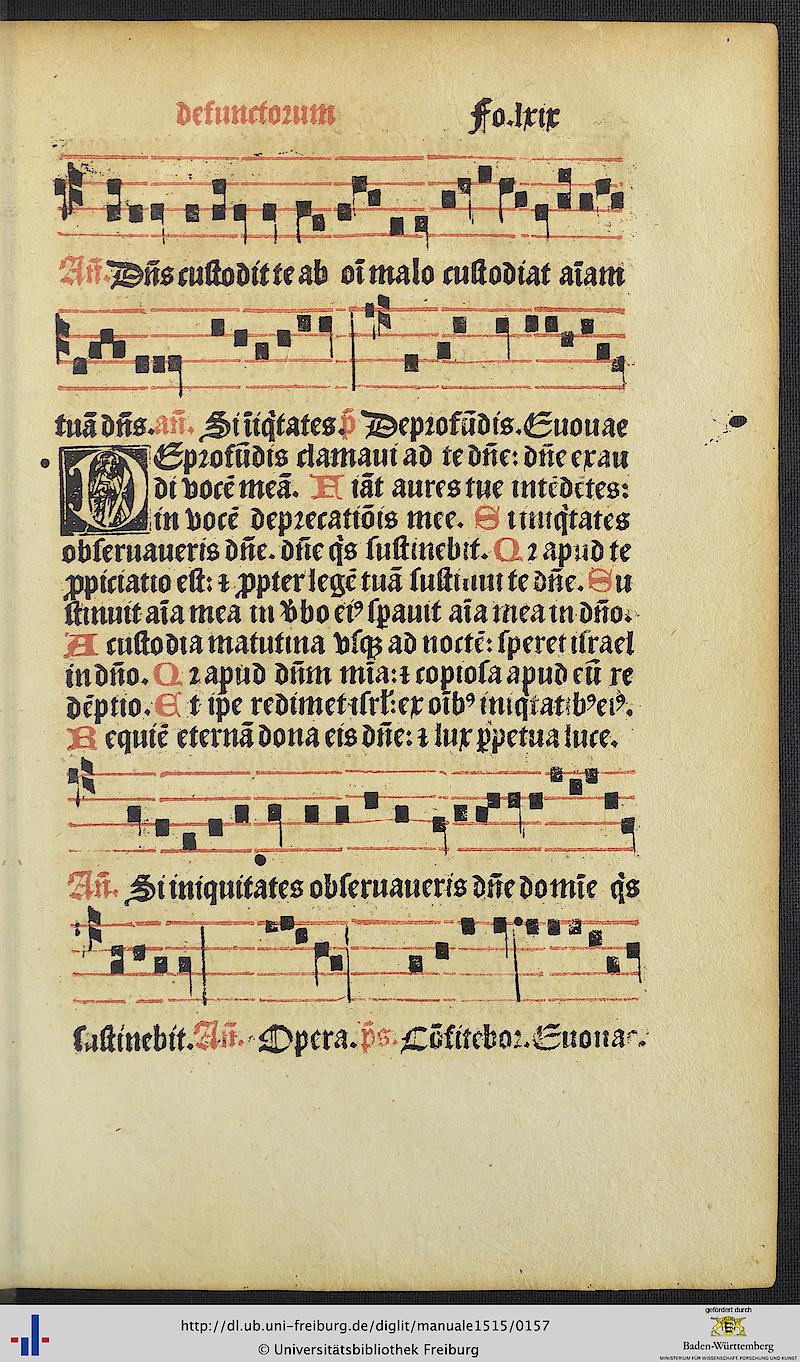 defunctorum Fo.lxix
Añ. Dñs custodit te ab oī malo custodiat aīam
tuā dñs. añ. Si īiq̇tates. p̄ Deprofūdis. Euouae
DEprofūdis clamaui ad te dñe: dñe exau
di vocē meā. F iāt aures tue intēdētes:
in vocē deprecatiōis mee. S i iniq̇tates
obseruaueris dñe. dñe q̇s sustinebit. Q ꝛ apud te
ꝓpiciatio est: ⁊ ꝓpter legē tuā sustinui te dñe. Su
stinuit aīa mea in v̄bo eiꝰ sꝑauit aīa mea in dño.
A custodia matutina vsqꝫ ad noctē: speret israel
in dño. Q ꝛ apud dñm mīa: ⁊ copiosa apud eū re
dēptio. E t ipe redimet isrl̄: ex oībꝰ iniq̇tatibꝰ eiꝰ.
R equiē eternā dona eis dñe: ⁊ lux ꝑpetua luce.
Añ. Si iniquitates obseruaueris dñe domīe q̇s
sustinebit. Añ. Opera. p̄s. Cōfitebor. Euouae.
http://dl.ub.uni-freiburg.de/diglit/manuale1515/0157
© Universitätsbibliothek Freiburg
gefördert durch
Baden-Württemberg
MINISTERIUM FÜR WISSENSCHAFT, FORSCHUNG UND KUNST